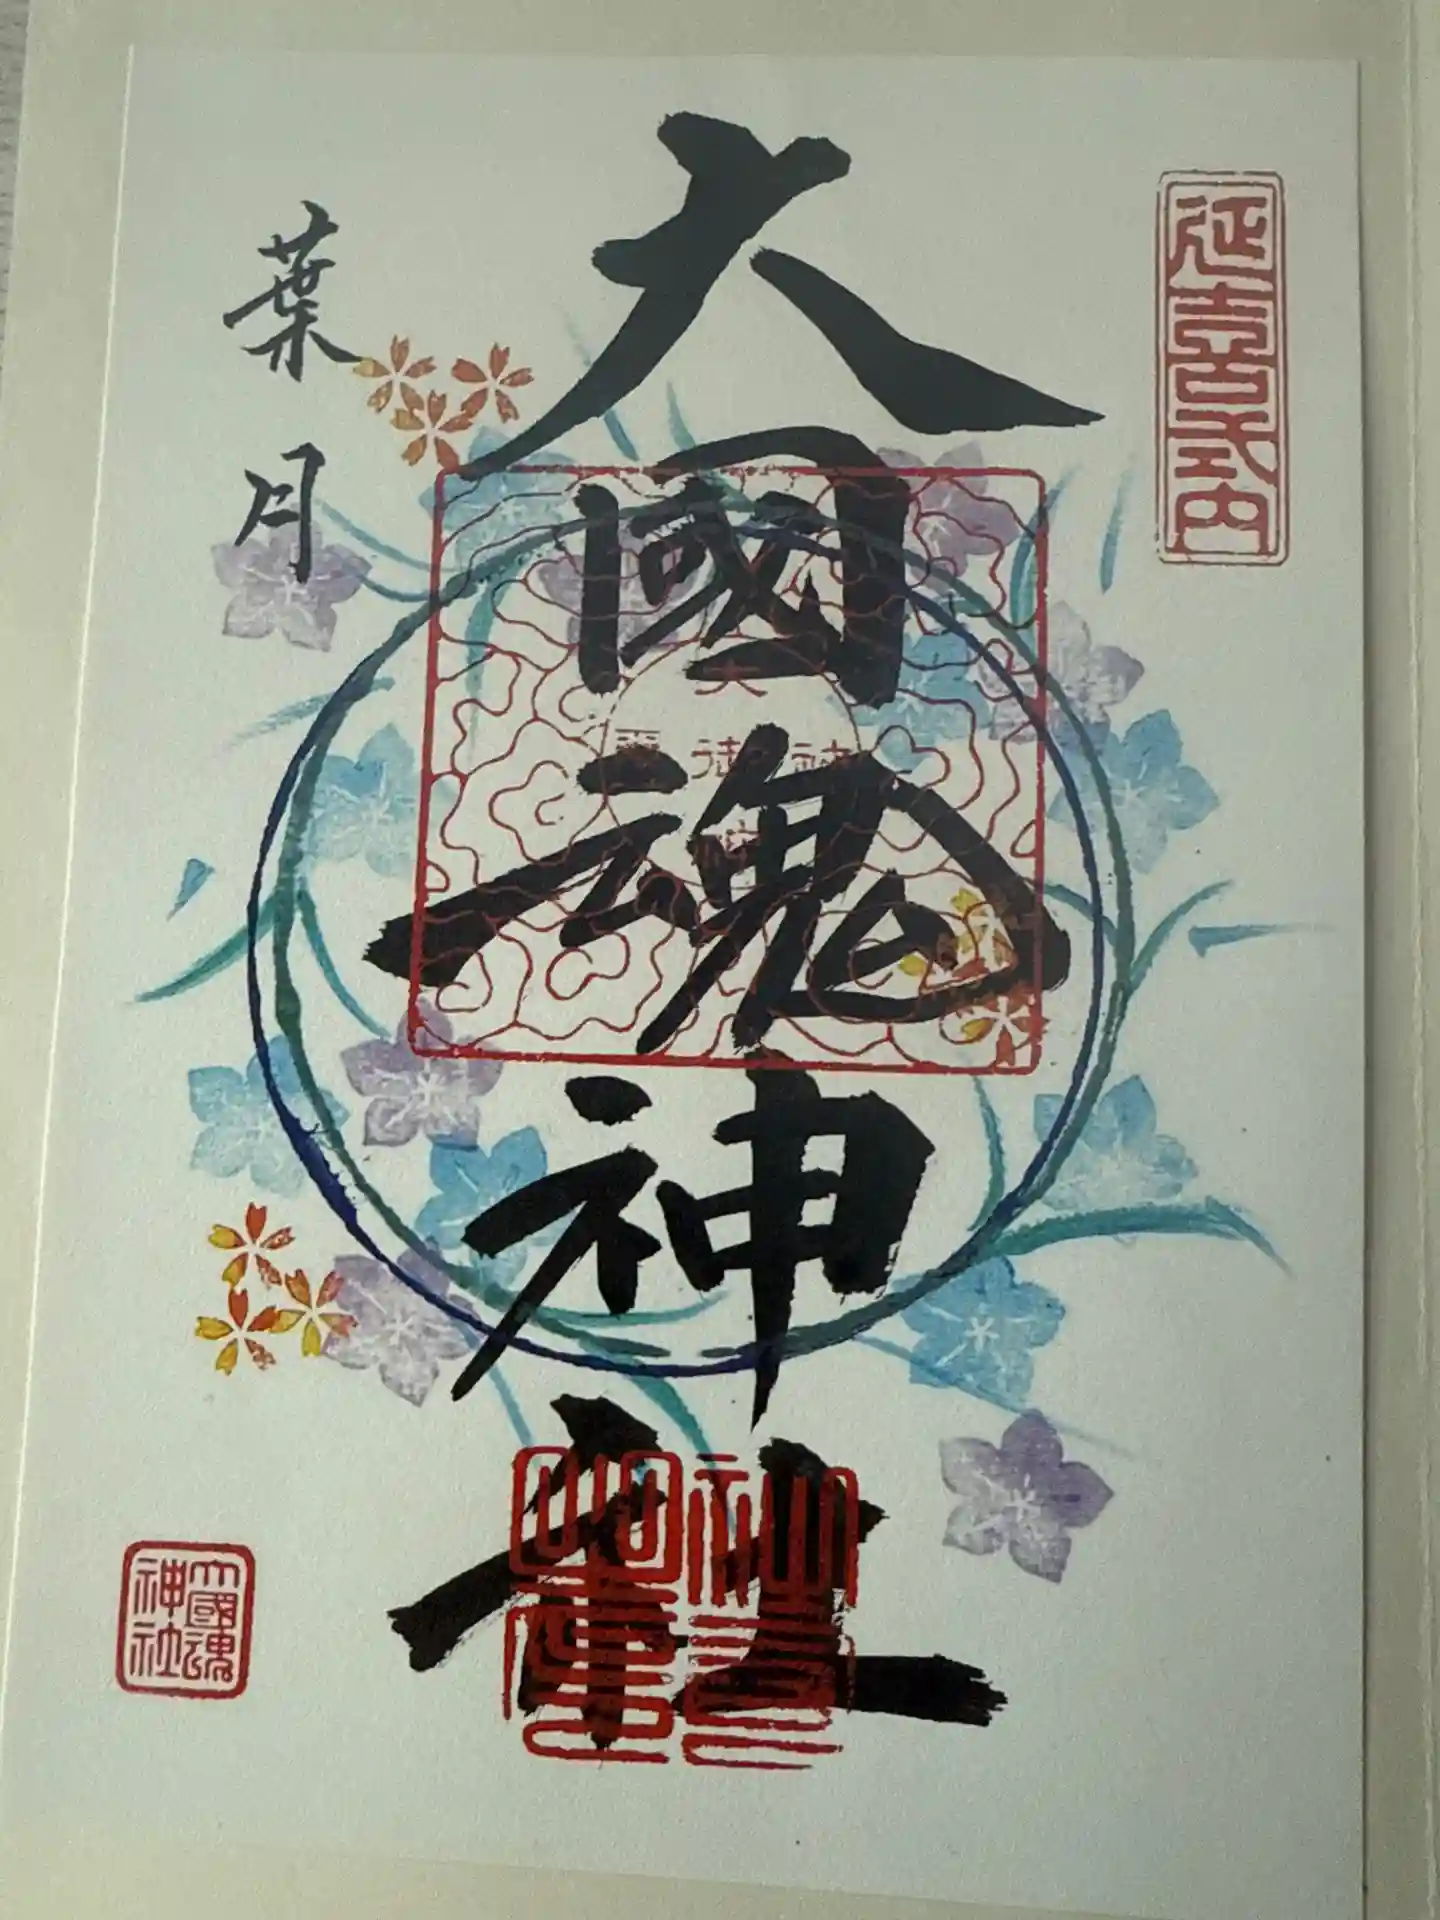 延喜式内
大國魂神社
葉月
大國魂
神社